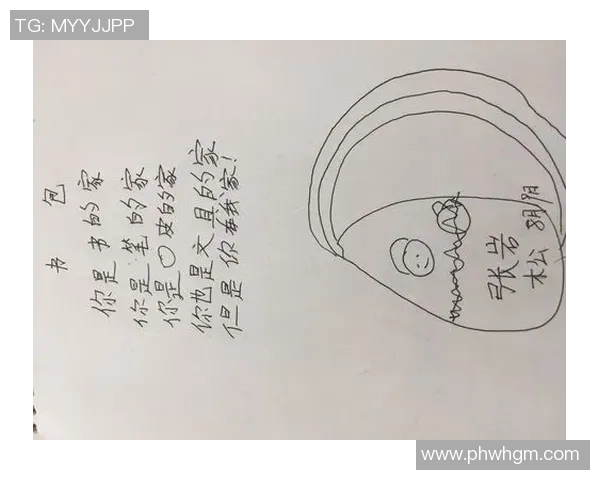 TG: MYYJJPP
书包
你是书的家
你是笔的家
你是〇皮的家
你也是文具的家
但是你我家!
张岩
松 8月
www.phwhgm.com